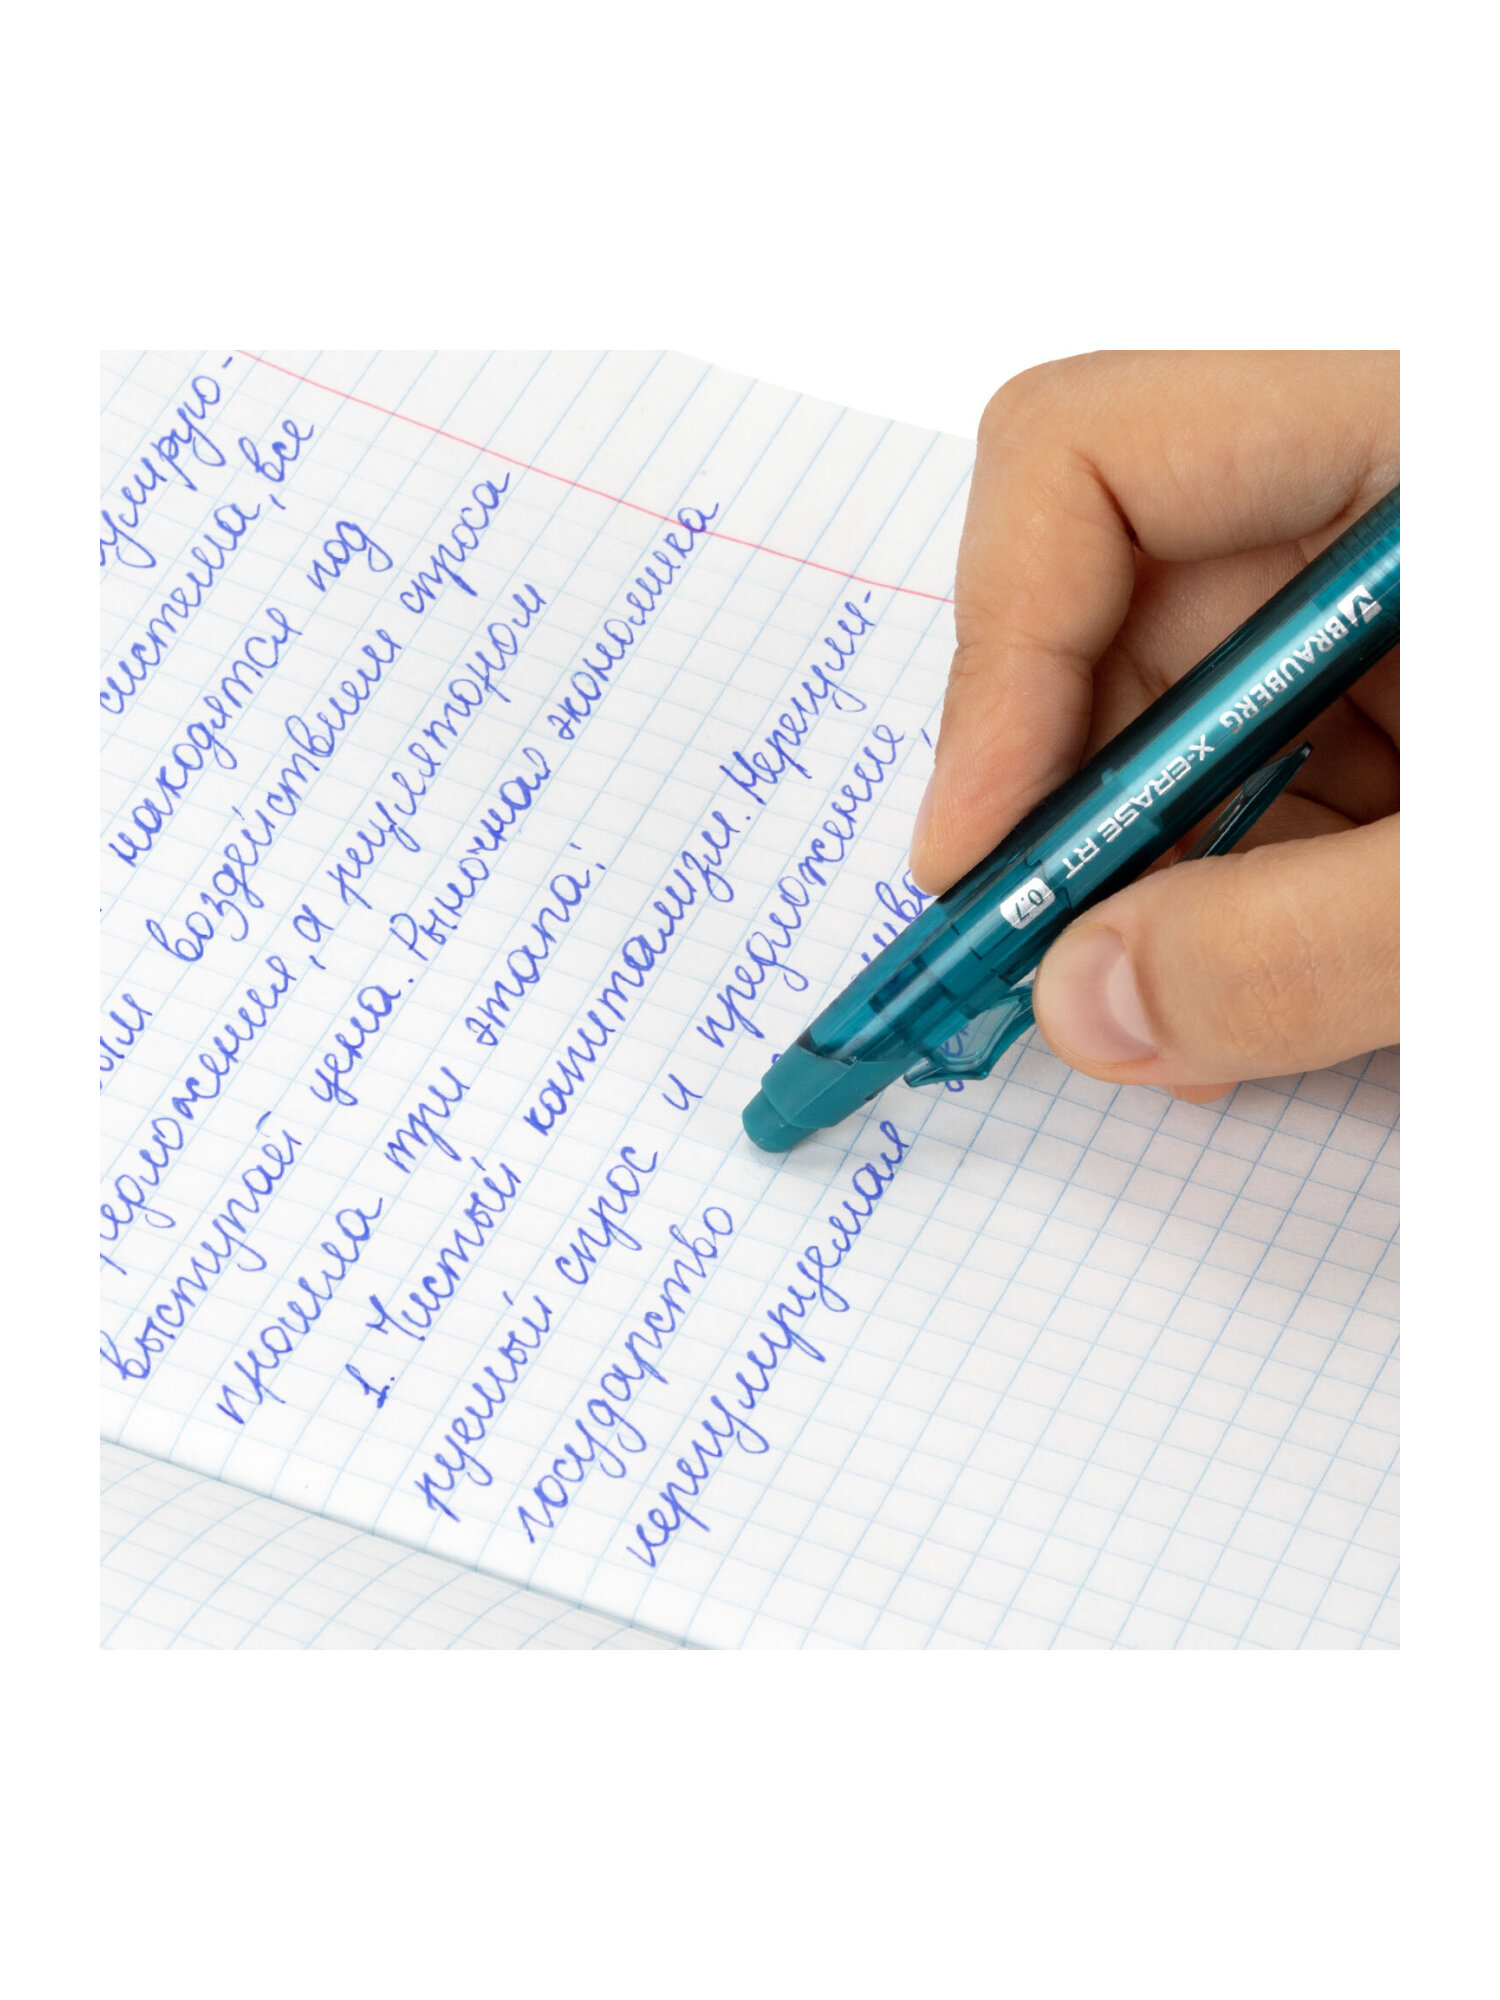 улирую-
система, все
находятся под
воздействием спроса
предложения, а регулятором
выступает цена. Рыночная экономика
прошла три этапа:
1. Чистый капитализм. Нерегули-
руемый спрос и предложение,
государство
нерегулируемая
BRAUBERG X-ERASE RT 0.7